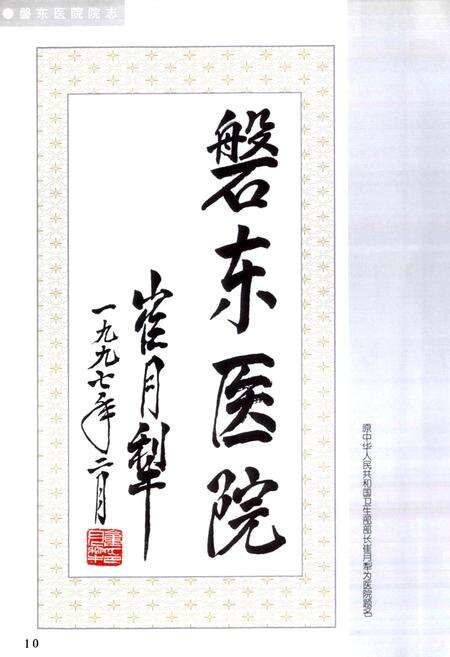 磐东医院院志
磐东医院
崔月犁
一九九七年二月
原中华人民共和国卫生部部长崔月犁为医院题名
10